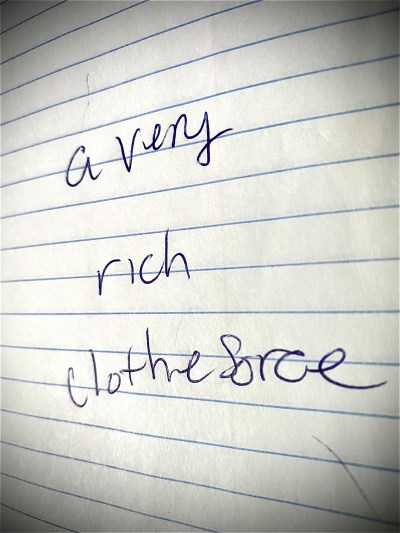 a very
rich
clothresorce